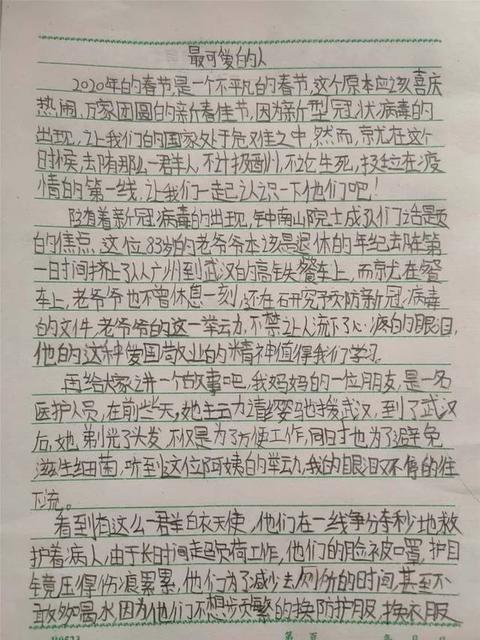 最可爱的人
2020年的春节是一个不平凡的春节,这个原本应该喜庆
热闹,万家团圆的新春佳节,因为新型冠状病毒的
出现,让我们的国家处于危难之中,然而,就在这个
时候,却有那么一群人,不计报酬,不论生死,挺立在疫
情的第一线,让我们一起认识一下他们吧!
随着新冠病毒的出现,钟南山院士成了人们话题
的焦点,这位83岁的老爷爷本该是退休的年纪却在第
一日时间挤上了从广州到武汉的高铁餐车上,而就在餐
车上,老爷爷也不曾休息一刻,还在研究预防新冠病毒
的文件,老爷爷的这一举动,不禁让人流下了心疼的眼泪,
他的这种爱国敬业的精神值得我们学习。
再给大家讲一个故事吧,我妈妈的一位朋友,是一名
医护人员,在前些天,她主动请缨驰援武汉,到了武汉
后,她剃光了头发,不仅是为了方便工作,同时也为了避免
滋生细菌,听到这位阿姨的举动,我的眼泪不停的往
下流。
看到有这么一群白衣天使,他们在一线争分夺秒地救
护着病人,由于长时间超负荷工作,他们的脸被口罩,护目
镜压得伤痕累累,他们为了减少去厕所的时间,甚至不
敢多喝水因为他们不想频繁的换防护服,换衣服